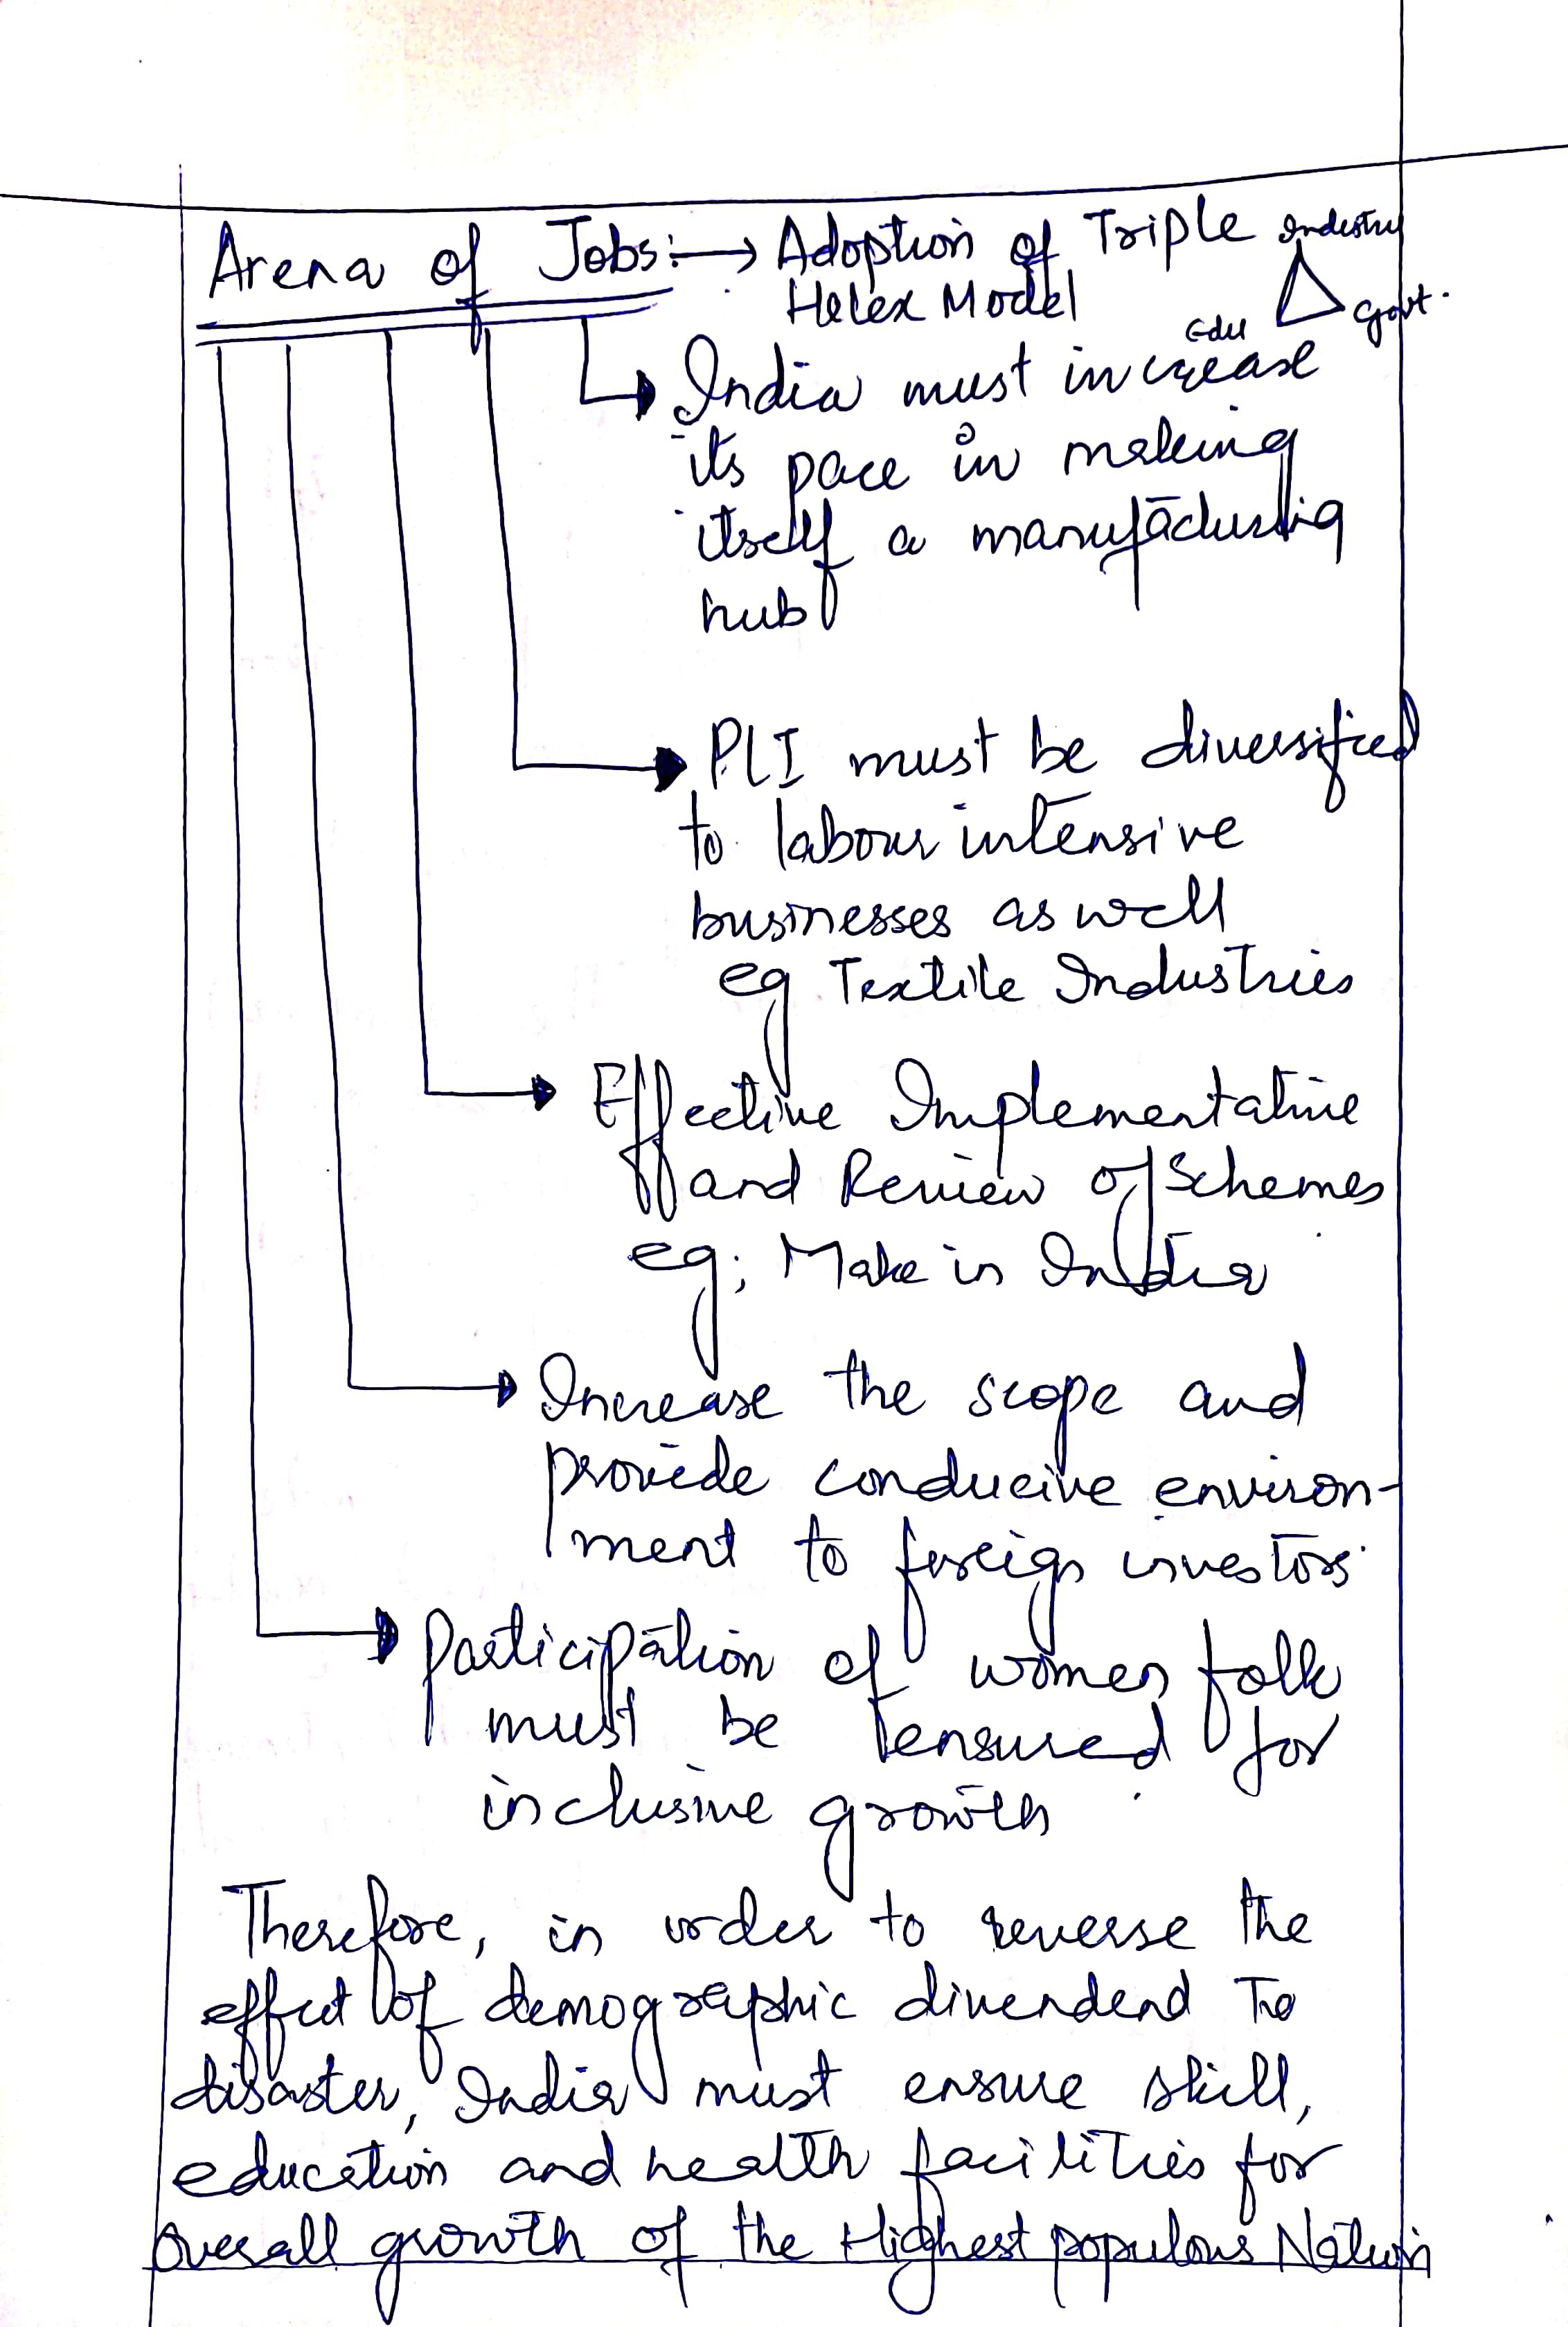 Arena of Jobs:→ Adoption of Triple
Helex Model
Industry
Edu
Govt.
India must increase
its pace in making
itself a manufacturing
hub
PLI must be diversified
to labour intensive
businesses as well
eg Textile Industries
Effective Implementative
and Review of Schemes
eg; Make in India
Increase the scope and
provide conducive environ-
ment to foreign investors.
Participation of women folk
must be ensured for
inclusive growth
Therefore, in order to reverse the
effect of demographic divendend to
disaster, India must ensure skill,
education and health facilities for
overall growth of the Highest populous Nation